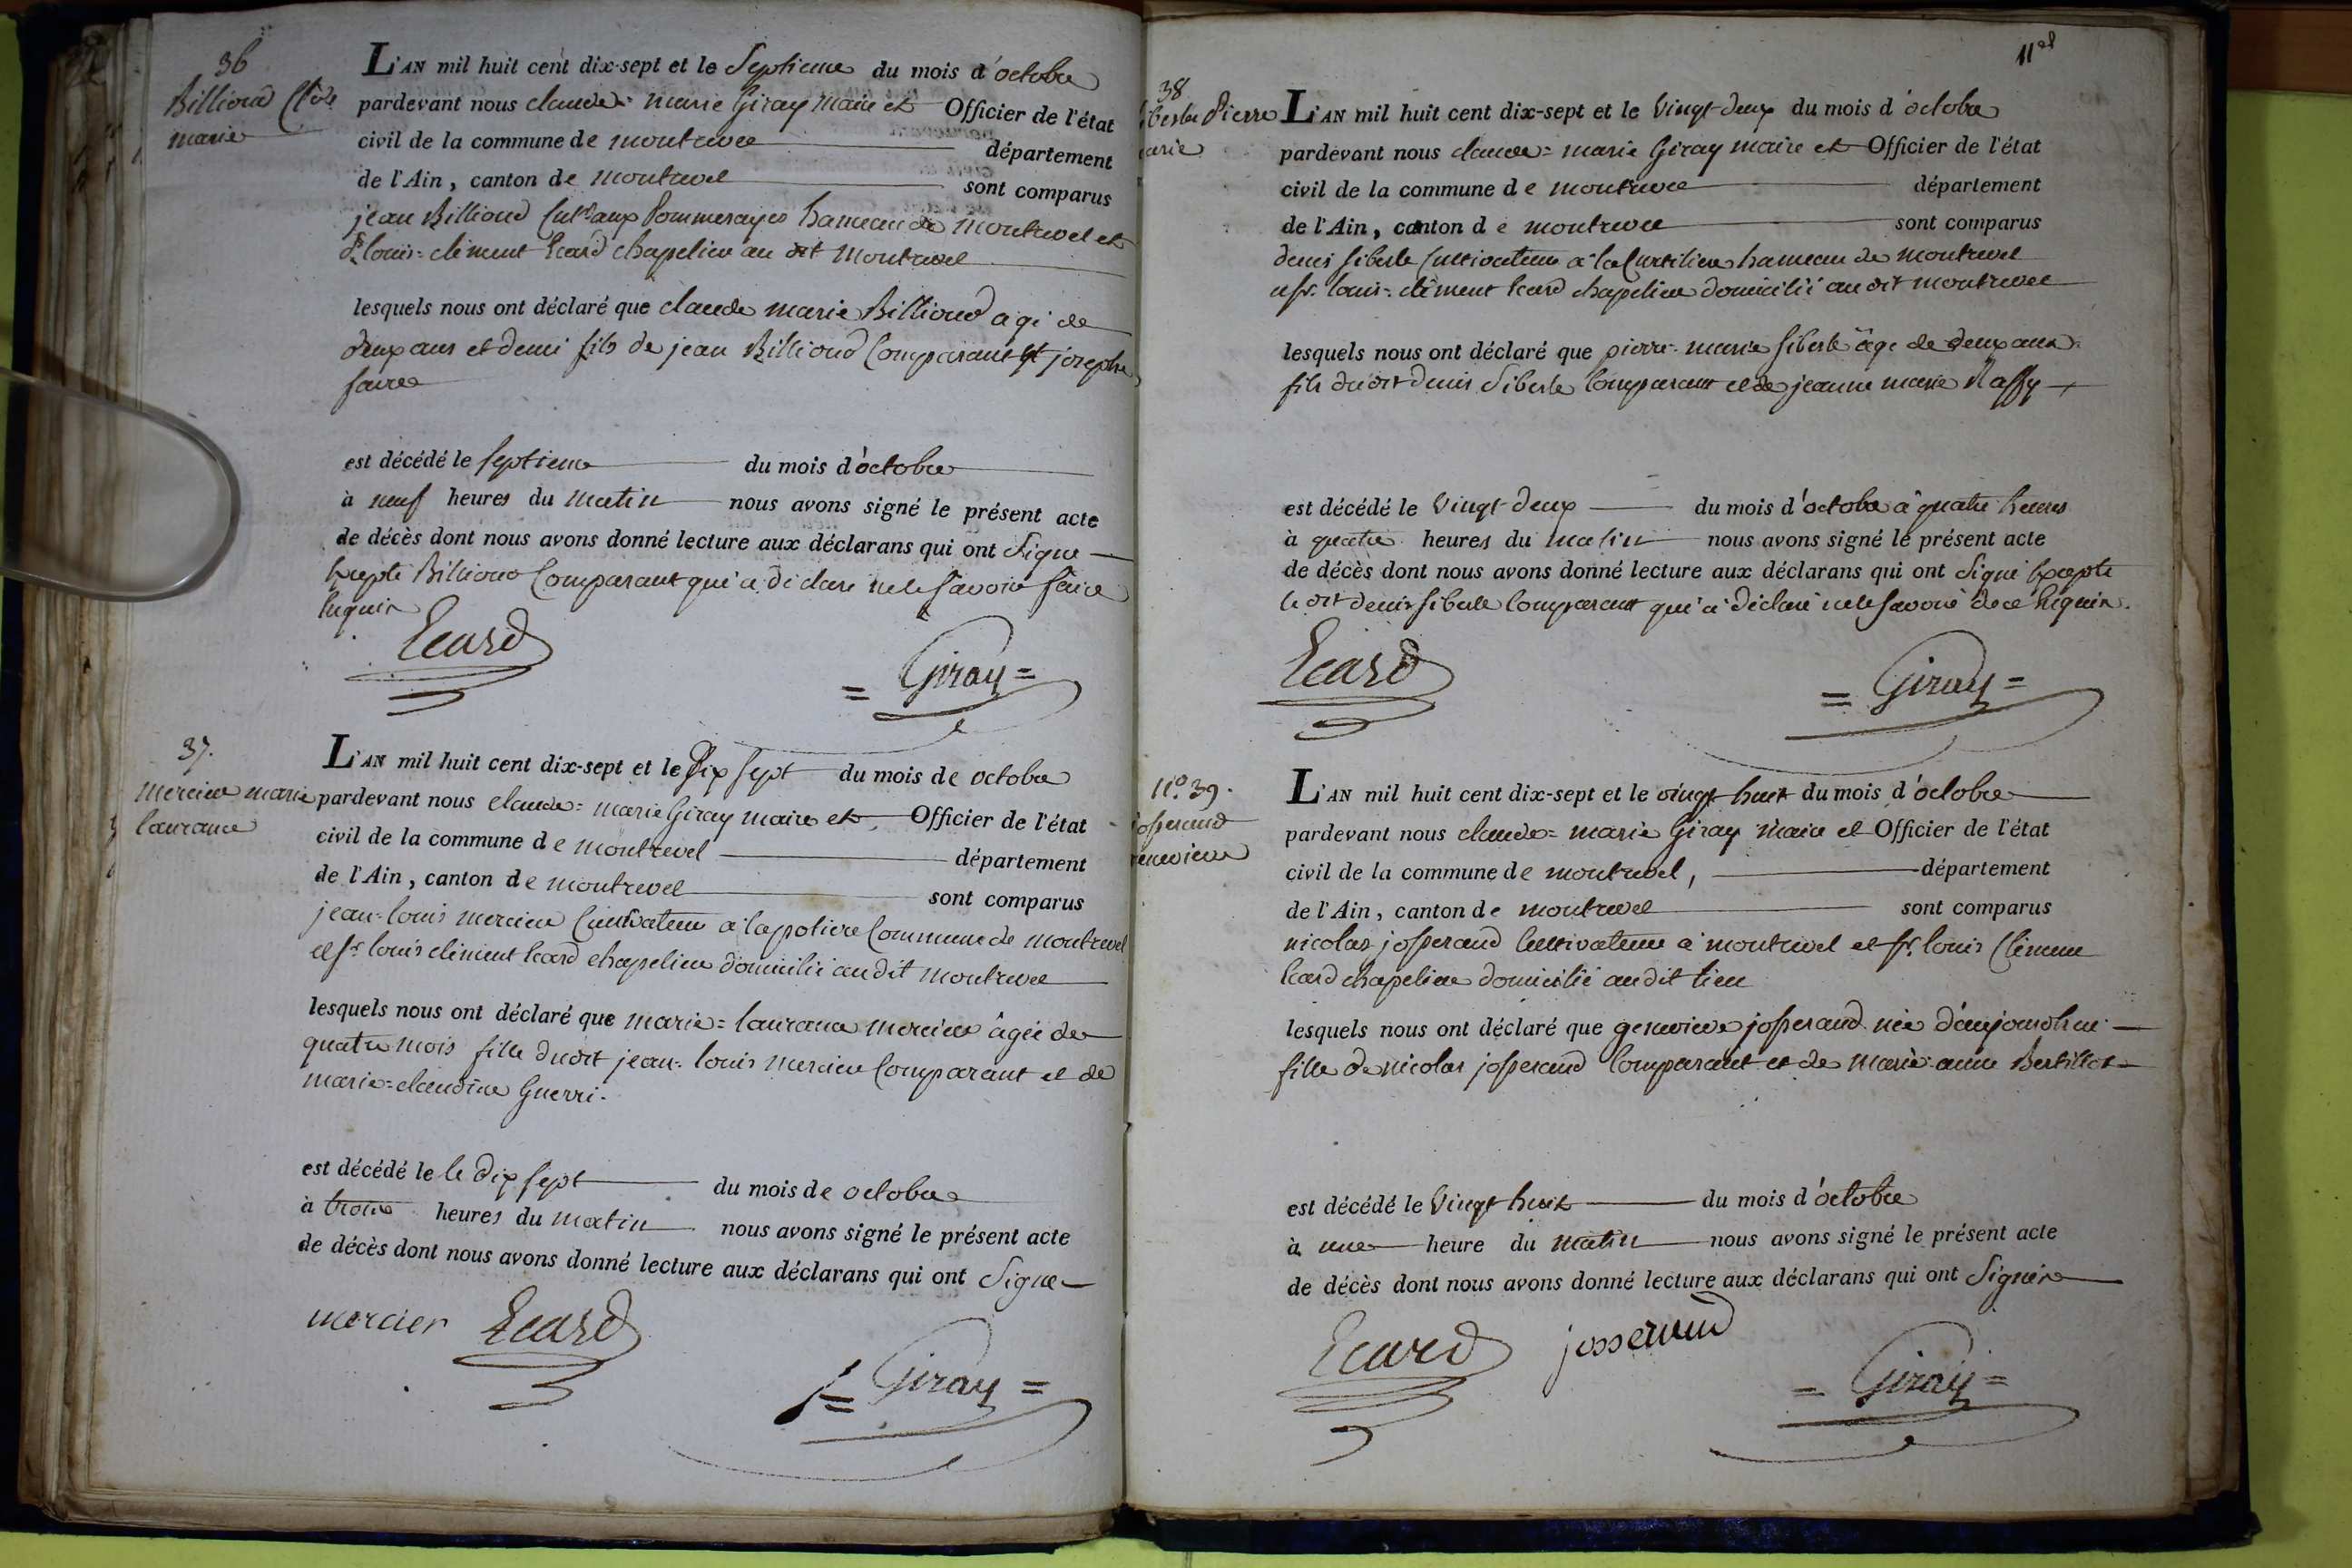 36
Billioud Cl.de
marie
L'AN mil huit cent dix-sept et le Septieme du mois d'octobre
pardevant nous claude = marie Giray maire et Officier de l'état
civil de la commune de montrevel département
de l'Ain, canton de montrevel sont comparus
jean Billioud Cult.r aux Pommerayes hameau de montrevel et
Sr louis = clément Ecard chapelier au dit Montrevel
lesquels nous ont déclaré que claude marie Billioud agé de
deux ans et demi fils de jean Billioud Comparant et josephe
favre
est décédé le septieme du mois d'octobre
à neuf heures du matin nous avons signé le présent acte
de décès dont nous avons donné lecture aux déclarans qui ont Signé
Excepté Billioud Comparant qui a déclaré ne le savoir faire
Enquis
Ecard
= Giray =
37.
mercier marie
laurance
L'AN mil huit cent dix-sept et le Dix sept du mois de octobre
pardevant nous claude = marie Giray maire et Officier de l'état
civil de la commune de montrevel département
de l'Ain, canton de montrevel sont comparus
jean = louis mercier Cultivateur à la poliere Commune de montrevel
et fs louis clément Ecard chapelier domicilié audit montrevel
lesquels nous ont déclaré que marie = laurance mercier âgée de
quatre mois fille dudit jean = louis mercier Comparant et de
marie = claudine Guerri.
est décédé le le dix sept du mois de octobre
à trois heures du matin nous avons signé le présent acte
de décès dont nous avons donné lecture aux déclarans qui ont Signé
mercier Ecard
= Giray =
11el
38
siberte Pierre
marie
L'AN mil huit cent dix-sept et le Vingt-deux du mois d'octobre
pardevant nous claude = marie Giray maire et Officier de l'état
civil de la commune de montrevel département
de l'Ain, canton de montrevel sont comparus
denis siberte Cultivateur à la Curtiliere hameau de montrevel
et fs. louis = clément Ecard chapelier domicilié au dit montrevel
lesquels nous ont déclaré que pierre = marie siberte âgé de deux ans
fils du dit denis Siberte Comparant et de jeanne marie Raffy
est décédé le Vingt-deux du mois d'octobre à quatre heures
à quatre heures du matin nous avons signé le présent acte
de décès dont nous avons donné lecture aux déclarans qui ont Signé Excepté
le dit denis siberte Comparant qui a déclaré ne le savoir de ce Enquis.
Ecard
= Giray =
N.o 39.
josserand
genevieve
L'AN mil huit cent dix-sept et le vingt huit du mois d'octobre
pardevant nous claude = marie Giray maire et Officier de l'état
civil de la commune de montrevel, département
de l'Ain, canton de montrevel sont comparus
nicolas josserand Cultivateur à montrevel et fs. louis Clément
Ecard chapelier domicilié audit lieu
lesquels nous ont déclaré que genevieve josserand née d'aujourdhui
fille de nicolas josserand Comparant et de Marie = anne Bertillot
est décédé le Vingt huit du mois d'octobre
à une heure du matin nous avons signé le présent acte
de décès dont nous avons donné lecture aux déclarans qui ont Signés
Ecard josserand
= Giray =